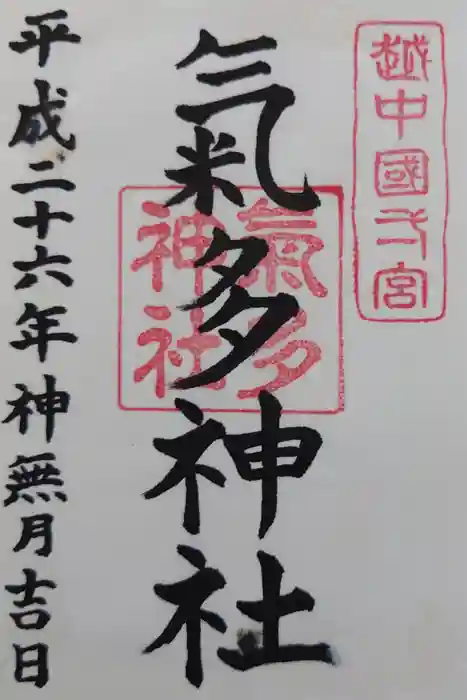 越中國一宮
氣多神社
氣多
神社
平成二十六年神無月吉日